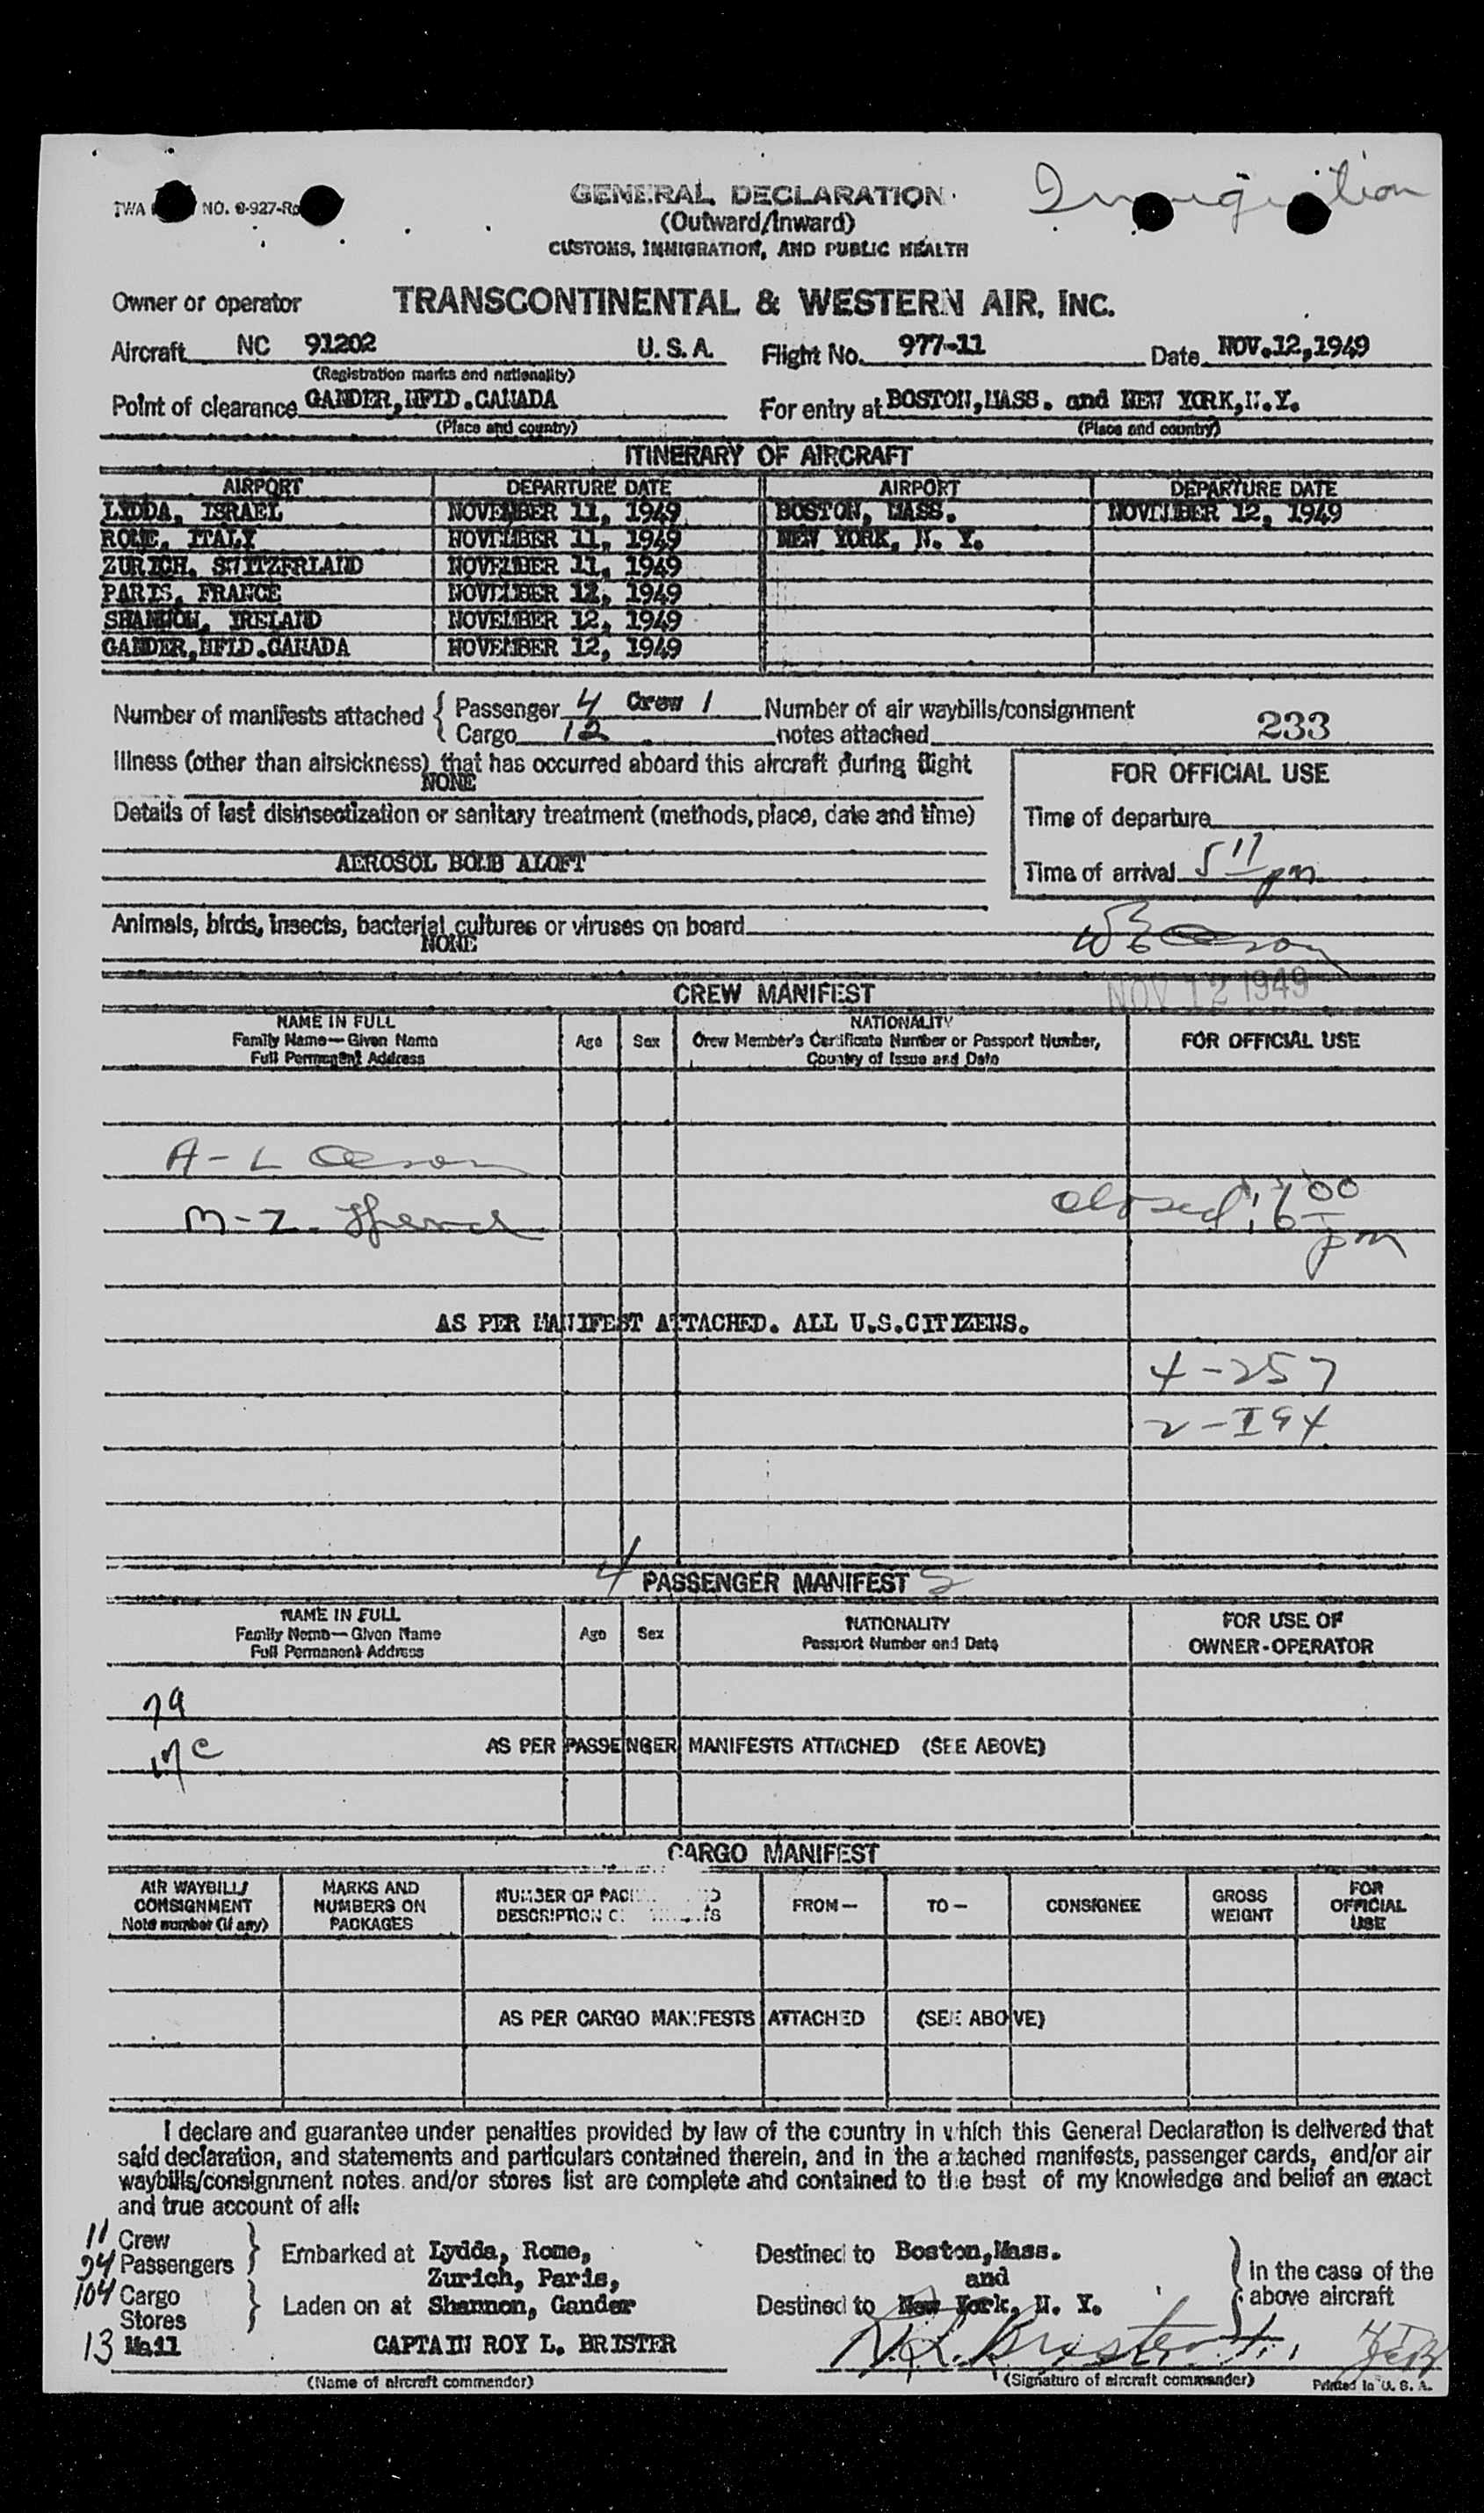 TWA NO. 0-927-R
Immigration
GENERAL DECLARATION
(Outward/Inward)
CUSTOMS, IMMIGRATION, AND PUBLIC HEALTH
Owner or operator TRANSCONTINENTAL & WESTERN AIR, INC.
Aircraft NC 91202 U.S.A. Flight No. 977-11 Date NOV.12,1949
(Registration marks and nationality)
Point of clearance GANDER,NFLD.CANADA For entry at BOSTON,MASS. and NEW YORK,N.Y.
(Place and country) (Place and country)
ITINERARY OF AIRCRAFT
AIRPORT DEPARTURE DATE AIRPORT DEPARTURE DATE
LYDDA, ISRAEL NOVEMBER 11, 1949 BOSTON, MASS. NOVEMBER 12, 1949
ROME, ITALY NOVEMBER 11, 1949 NEW YORK, N. Y.
ZURICH, SWITZERLAND NOVEMBER 11, 1949
PARIS, FRANCE NOVEMBER 12, 1949
SHANNON, IRELAND NOVEMBER 12, 1949
GANDER,NFLD.CANADA NOVEMBER 12, 1949
Number of manifests attached { Passenger 4 Crew 1 Number of air waybills/consignment
Cargo 12 notes attached 233
Illness (other than airsickness) that has occurred aboard this aircraft during flight
NONE
FOR OFFICIAL USE
Details of last disinsectization or sanitary treatment (methods, place, date and time)
Time of departure
AEROSOL BOMB ALOFT
Time of arrival 5 17 pm
Animals, birds, insects, bacterial cultures or viruses on board
NONE
NOV 12 1949
CREW MANIFEST
NAME IN FULL
Family Name—Given Name
Full Permanent Address
Age Sex
NATIONALITY
Crew Member's Certificate Number or Passport Number,
Country of Issue and Date
FOR OFFICIAL USE
A-L
M-Z
closed: 6 00 pm
AS PER MANIFEST ATTACHED. ALL U.S.CITIZENS.
4-257
2-I94
4 PASSENGER MANIFEST 2
NAME IN FULL
Family Name—Given Name
Full Permanent Address
Age Sex
NATIONALITY
Passport Number and Date
FOR USE OF
OWNER-OPERATOR
AS PER PASSENGER MANIFESTS ATTACHED (SEE ABOVE)
CARGO MANIFEST
AIR WAYBILL/
CONSIGNMENT
Note number (if any)
MARKS AND
NUMBERS ON
PACKAGES
NUMBER OF
DESCRIPTION
FROM—
TO—
CONSIGNEE
GROSS
WEIGHT
FOR
OFFICIAL
USE
AS PER CARGO MANIFESTS ATTACHED (SEE ABOVE)
I declare and guarantee under penalties provided by law of the country in which this General Declaration is delivered that
said declaration, and statements and particulars contained therein, and in the attached manifests, passenger cards, and/or air
waybills/consignment notes and/or stores list are complete and contained to the best of my knowledge and belief an exact
and true account of all:
11 Crew
Passengers } Embarked at Lydda, Rome, Destined to Boston,Mass. } in the case of the
Zurich, Paris, and
104 Cargo } Laden on at Shannon, Gander Destined to New York, N. Y. above aircraft
Stores
13 Mail CAPTAIN ROY L. BRISTER
(Name of aircraft commander) (Signature of aircraft commander) Printed in U. S. A.